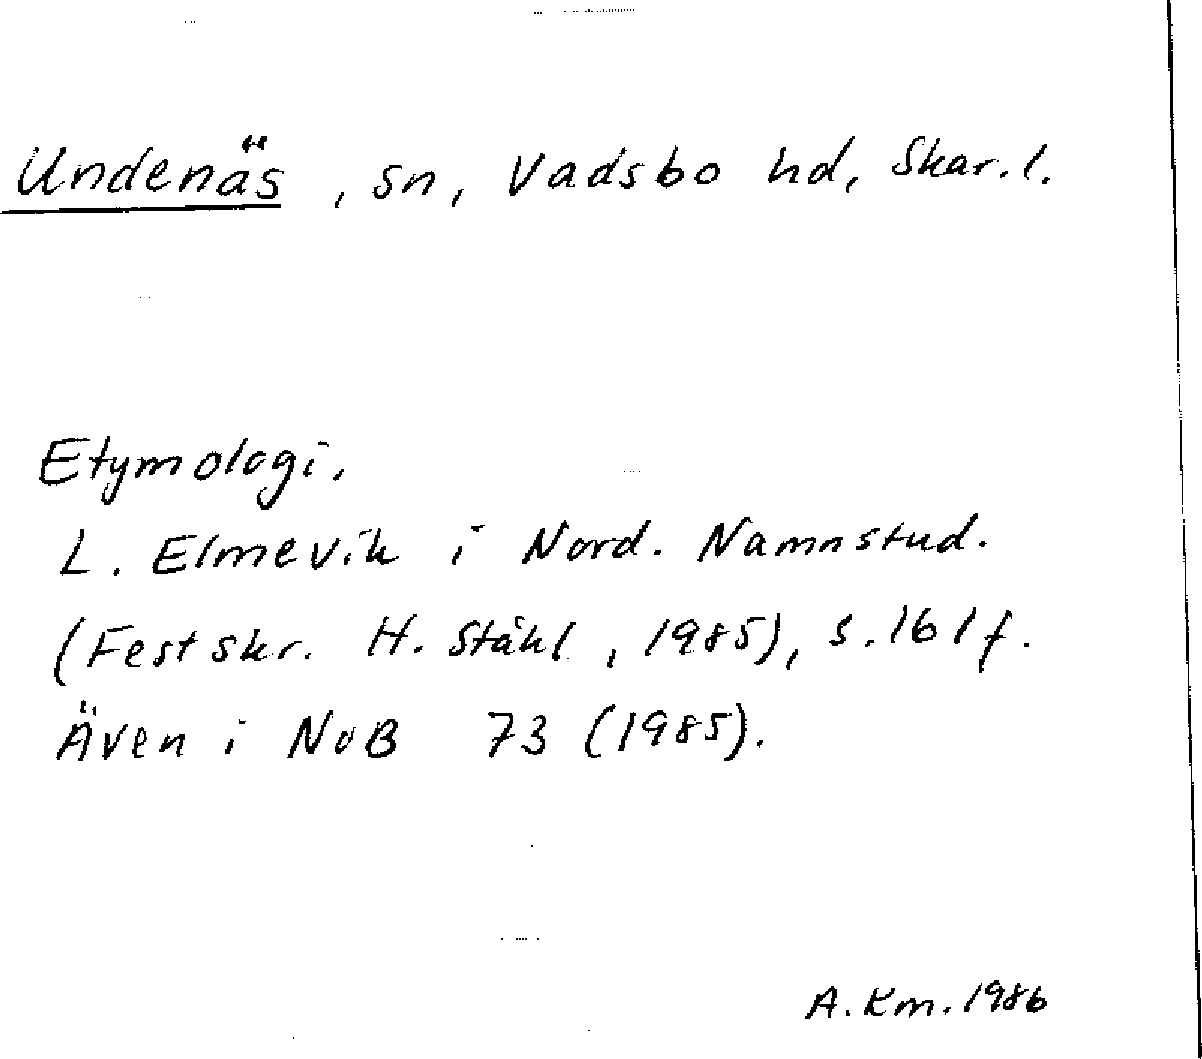 Undenäs, sn, Vadsbo hd, Skar. l.
Etymologi.
L. Elmevik i Nord. Namnstud.
(Festskr. H. Ståhl, 1985), s. 161 f.
Även i NoB 73 (1985).
A. Km. 1986